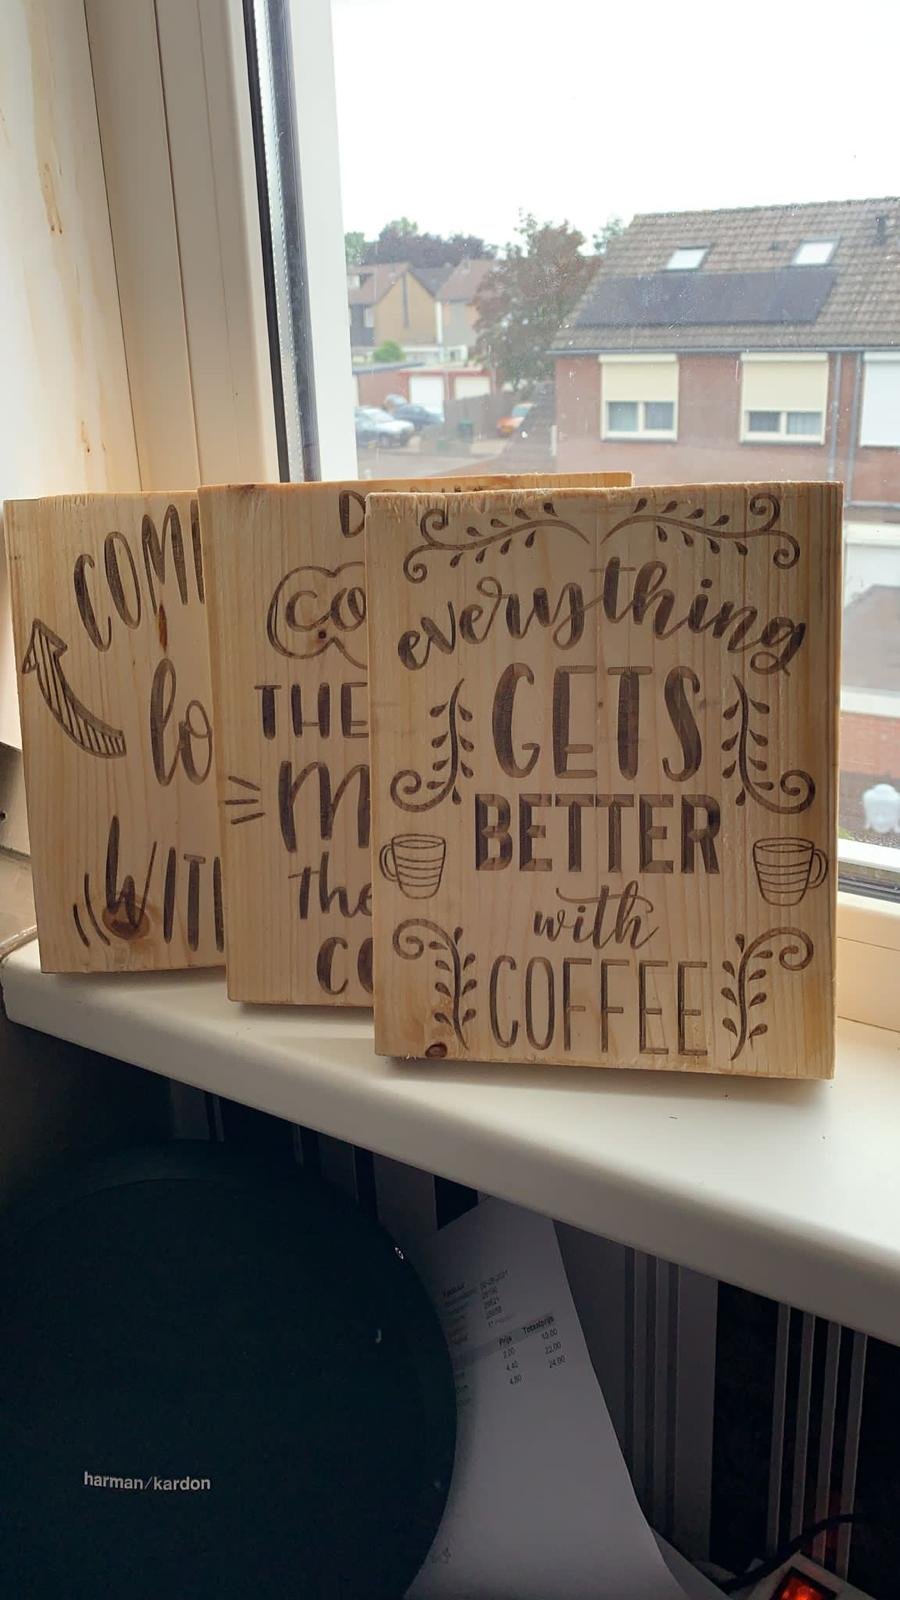 COM
lo
WIT
D
CO
THE
M
the
CO
everything
GETS
BETTER
with
COFFEE
Prijs Totaalprijs
2,00 10,00
4,40 22,00
4,80 24,00
harman/kardon